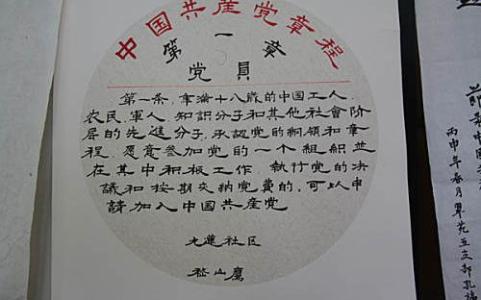 中国共産党章程
第一章
党員
第一条 年滿十八歲的中国工人、
农民、軍人、知識分子和其他社會阶
层的先進分子，承认党的綱领和章
程，愿意参加党的一个組織並
在其中积极工作、执行党的决
議和按期交納党費的，可以申
請加入中国共産党
九莲社区
嵇山鹰
丙申年春月翠苑五支部孔